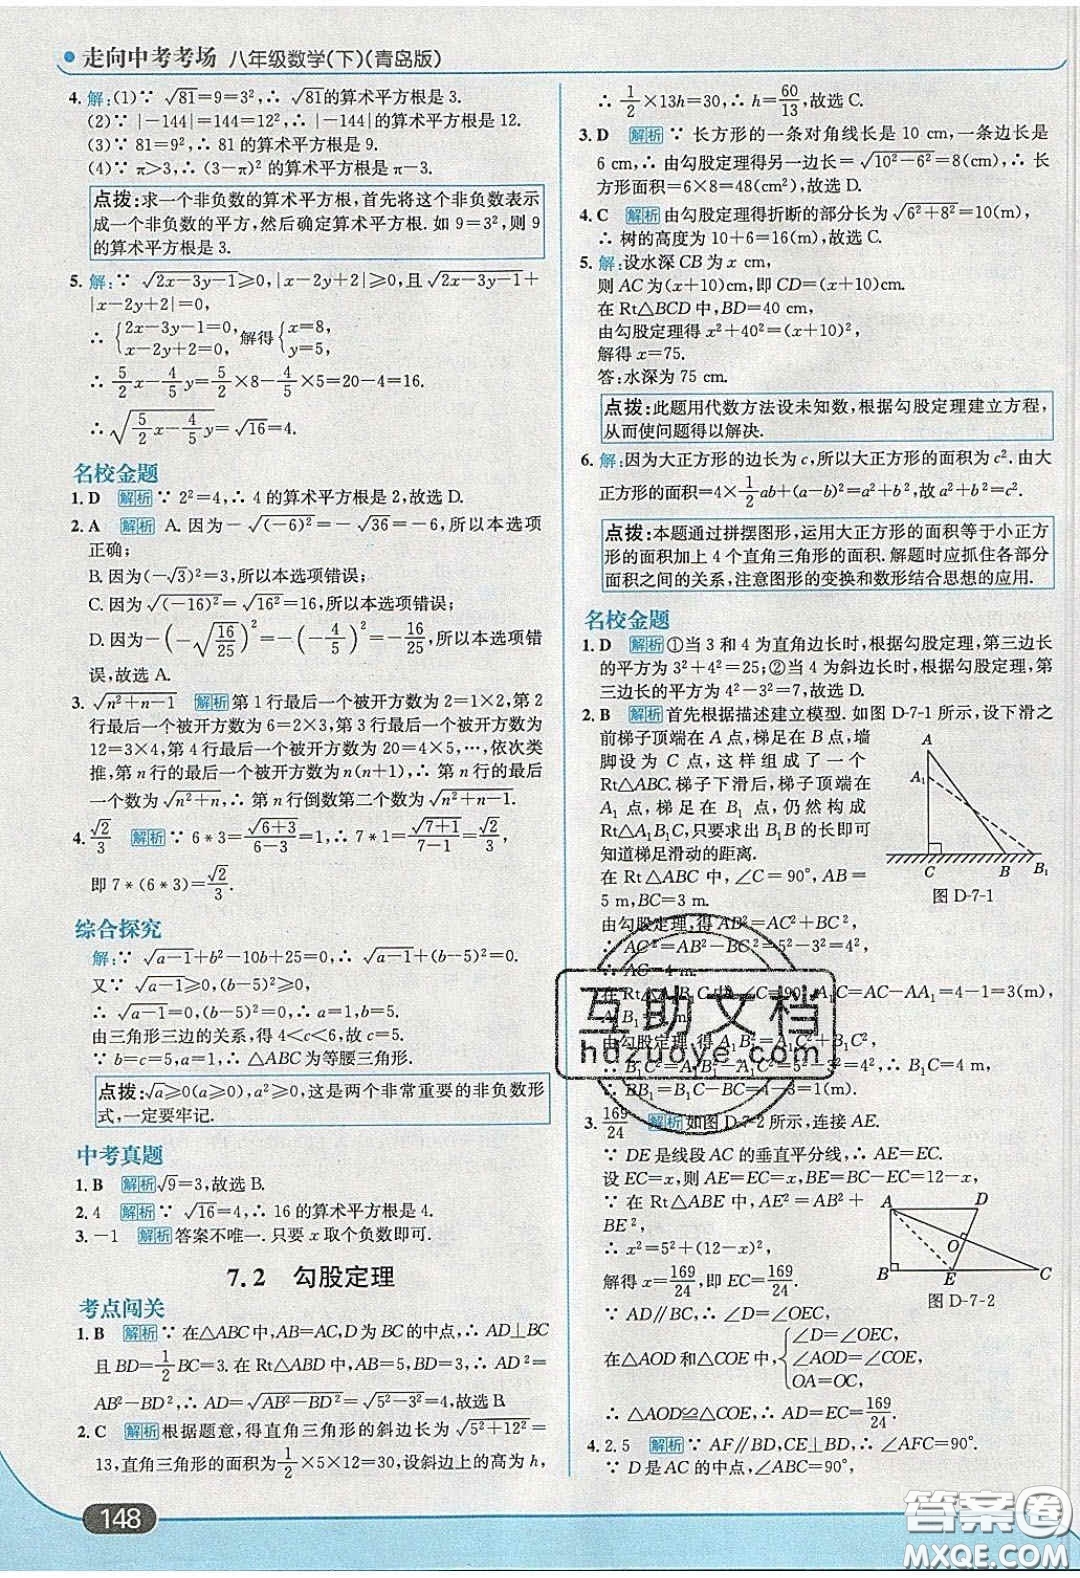 走向中考考场 八年级数学(下)(青岛版)
4. 解:(1)∵ √81=9=3²,∴ √81的算术平方根是 3.
(2)∵ |-144|=144=12²,∴ |-144|的算术平方根是 12.
(3)∵ 81=9²,∴ 81 的算术平方根是 9.
(4)∵ π>3,∴ (3-π)² 的算术平方根是 π-3.
点拨:求一个非负数的算术平方根,首先将这个非负数表示
成一个非负数的平方,然后确定算术平方根.如 9=3²,则 9
的算术平方根是 3.
5. 解:∵ √(2x-3y-1)≥0,|x-2y+2|≥0,且√(2x-3y-1)+
|x-2y+2|=0,
∴ {2x-3y-1=0, x-2y+2=0, 解得{x=8, y=5,
∴ 5/2x-4/5y=5/2×8-4/5×5=20-4=16.
∴√(5/2x-4/5y)=√16=4.
名校金题
1. D 解析 ∵ 2²=4,∴ 4 的算术平方根是 2,故选 D.
2. A 解析 A. 因为-√(-6)²=-√36=-6,所以本选项
正确;
B. 因为(-√3)²=3,所以本选项错误;
C. 因为√(-16)²=√16²=16,所以本选项错误;
D. 因为-(-√(16/25))²=-(-4/5)²=-16/25,所以本选项错
误,故选 A.
3. √(n²+n-1) 解析 第 1 行最后一个被开方数为 2=1×2,第 2
行最后一个被开方数为 6=2×3,第 3 行最后一个被开方数为
12=3×4,第 4 行最后一个被开方数为 20=4×5,…,依次类
推,第 n 行的最后一个被开方数为 n(n+1),∴ 第 n 行的最后
一个数为√(n²+n),∴ 第 n 行倒数第二个数为√(n²+n-1).
4. √2/3 解析 ∵ 6*3=√(6+3)/(6-3)=1,∴ 7*1=√(7+1)/(7-1)=√2/3,
即 7*(6*3)=√2/3.
综合探究
解:∵ √(a-1)+b²-10b+25=0,∴ √(a-1)+(b-5)²=0.
又∵ √(a-1)≥0,(b-5)²≥0,
∴ √(a-1)=0,(b-5)²=0,∴ a=1,b=5.
由三角形三边的关系,得 4<c<6,故 c=5.
∵ b=c=5,a=1,∴ △ABC 为等腰三角形.
点拨:√a≥0(a≥0),a²≥0,这是两个非常重要的非负数形
式,一定要牢记.
中考真题
1. B 解析 √9=3,故选 B.
2. 4 解析 ∵ √16=4,∴ 16 的算术平方根是 4.
3. -1 解析 答案不唯一.只要 x 取个负数即可.
7.2 勾股定理
考点闯关
1. B 解析 ∵ 在△ABC 中,AB=AC,D 为 BC 的中点,∴ AD⊥BC
且 BD=1/2BC=3. 在 Rt△ABD 中,AB=5,BD=3,∴ AD²=
AB²-BD²,∴ AD=√(AB²-BD²)=√(5²-3²)=4,故选 B.
2. C 解析 根据题意,得直角三角形的斜边长为√(5²+12²)=
13,直角三角形的面积为1/2×5×12=30. 设斜边上的高为 h,
148
∴ 1/2×13h=30,∴ h=60/13,故选 C.
3. D 解析 ∵ 长方形的一条对角线长是 10 cm,一条边长是
6 cm,∴ 由勾股定理得另一边长=√(10²-6²)=8(cm),∴ 长
方形面积=6×8=48(cm²),故选 D.
4. C 解析 由勾股定理得折断的部分长为√(6²+8²)=10(m),
∴ 树的高度为 10+6=16(m),故选 C.
5. 解:设水深 CB 为 x cm,
则 AC 为(x+10)cm,即 CD=(x+10)cm.
在 Rt△BCD 中,BD=40 cm,
由勾股定理得 x²+40²=(x+10)²,
解得 x=75.
答:水深为 75 cm.
点拨:此题用代数方法设未知数,根据勾股定理建立方程,
从而使问题得以解决.
6. 解:因为大正方形的边长为 c,所以大正方形的面积为 c². 由大
正方形的面积=4×1/2ab+(a-b)²=a²+b²,故 a²+b²=c².
点拨:本题通过拼摆图形,运用大正方形的面积等于小正方
形的面积加上 4 个直角三角形的面积. 解题时应抓住各部分
面积之间的关系,注意图形的变换和数形结合思想的应用.
名校金题
1. D 解析 ①当 3 和 4 为直角边长时,根据勾股定理,第三边长
的平方为 3²+4²=25;②当 4 为斜边长时,根据勾股定理,第
三边长的平方为 4²-3²=7,故选 D.
2. B 解析 首先根据描述建立模型. 如图 D-7-1 所示,设下滑之
前梯子顶端在 A 点,梯足在 B 点,墙
脚设为 C 点,这样组成了一个
Rt△ABC. 梯子下滑后,梯子顶端在
A₁ 点,梯足在 B₁ 点,仍然构成
Rt△A₁B₁C,只要求出 B₁B 的长即可
知道梯足滑动的距离.
在 Rt△ABC 中,∠C=90°,AB=
5 m,BC=3 m.
A
A₁
C
B
B₁
图 D-7-1
由勾股定理,得 AB²=AC²+BC²,
∴ AC²=AB²-BC²=5²-3²=4²,
∴ AC=4 m.
在 Rt△A₁B₁C 中,∠C=90°,A₁C=AC-AA₁=4-1=3(m),
由勾股定理,得 A₁B₁²=A₁C²+B₁C²,
∴ B₁C²=A₁B₁²-A₁C²=5²-3²=4²,∴ B₁C=4 m.
∴ BB₁=B₁C-BC=4-3=1(m).
3. 169/24 解析 如图 D-7-2 所示,连接 AE.
∵ DE 是线段 AC 的垂直平分线,∴ AE=EC.
设 EC=x,则 AE=EC=x,BE=BC-EC=12-x,
∵ 在 Rt△ABE 中,AE²=AB²+
BE²,
∴ x²=5²+(12-x)²,
解得 x=169/24,即 EC=169/24.
A
D
O
B
E
C
图 D-7-2
∵ AD∥BC,∴ ∠D=∠OEC,
在△AOD 和△COE 中,{∠D=∠OEC, ∠AOD=∠COE, OA=OC,
∴ △AOD≌△COE,∴ AD=EC=169/24.
4. 2.5 解析 ∵ AF∥BD,CE⊥BD,∴ ∠AFC=90°.
∵ D 是 AC 的中点,
互助文档
hdzuoye.com
答案圈
MXQE.COM